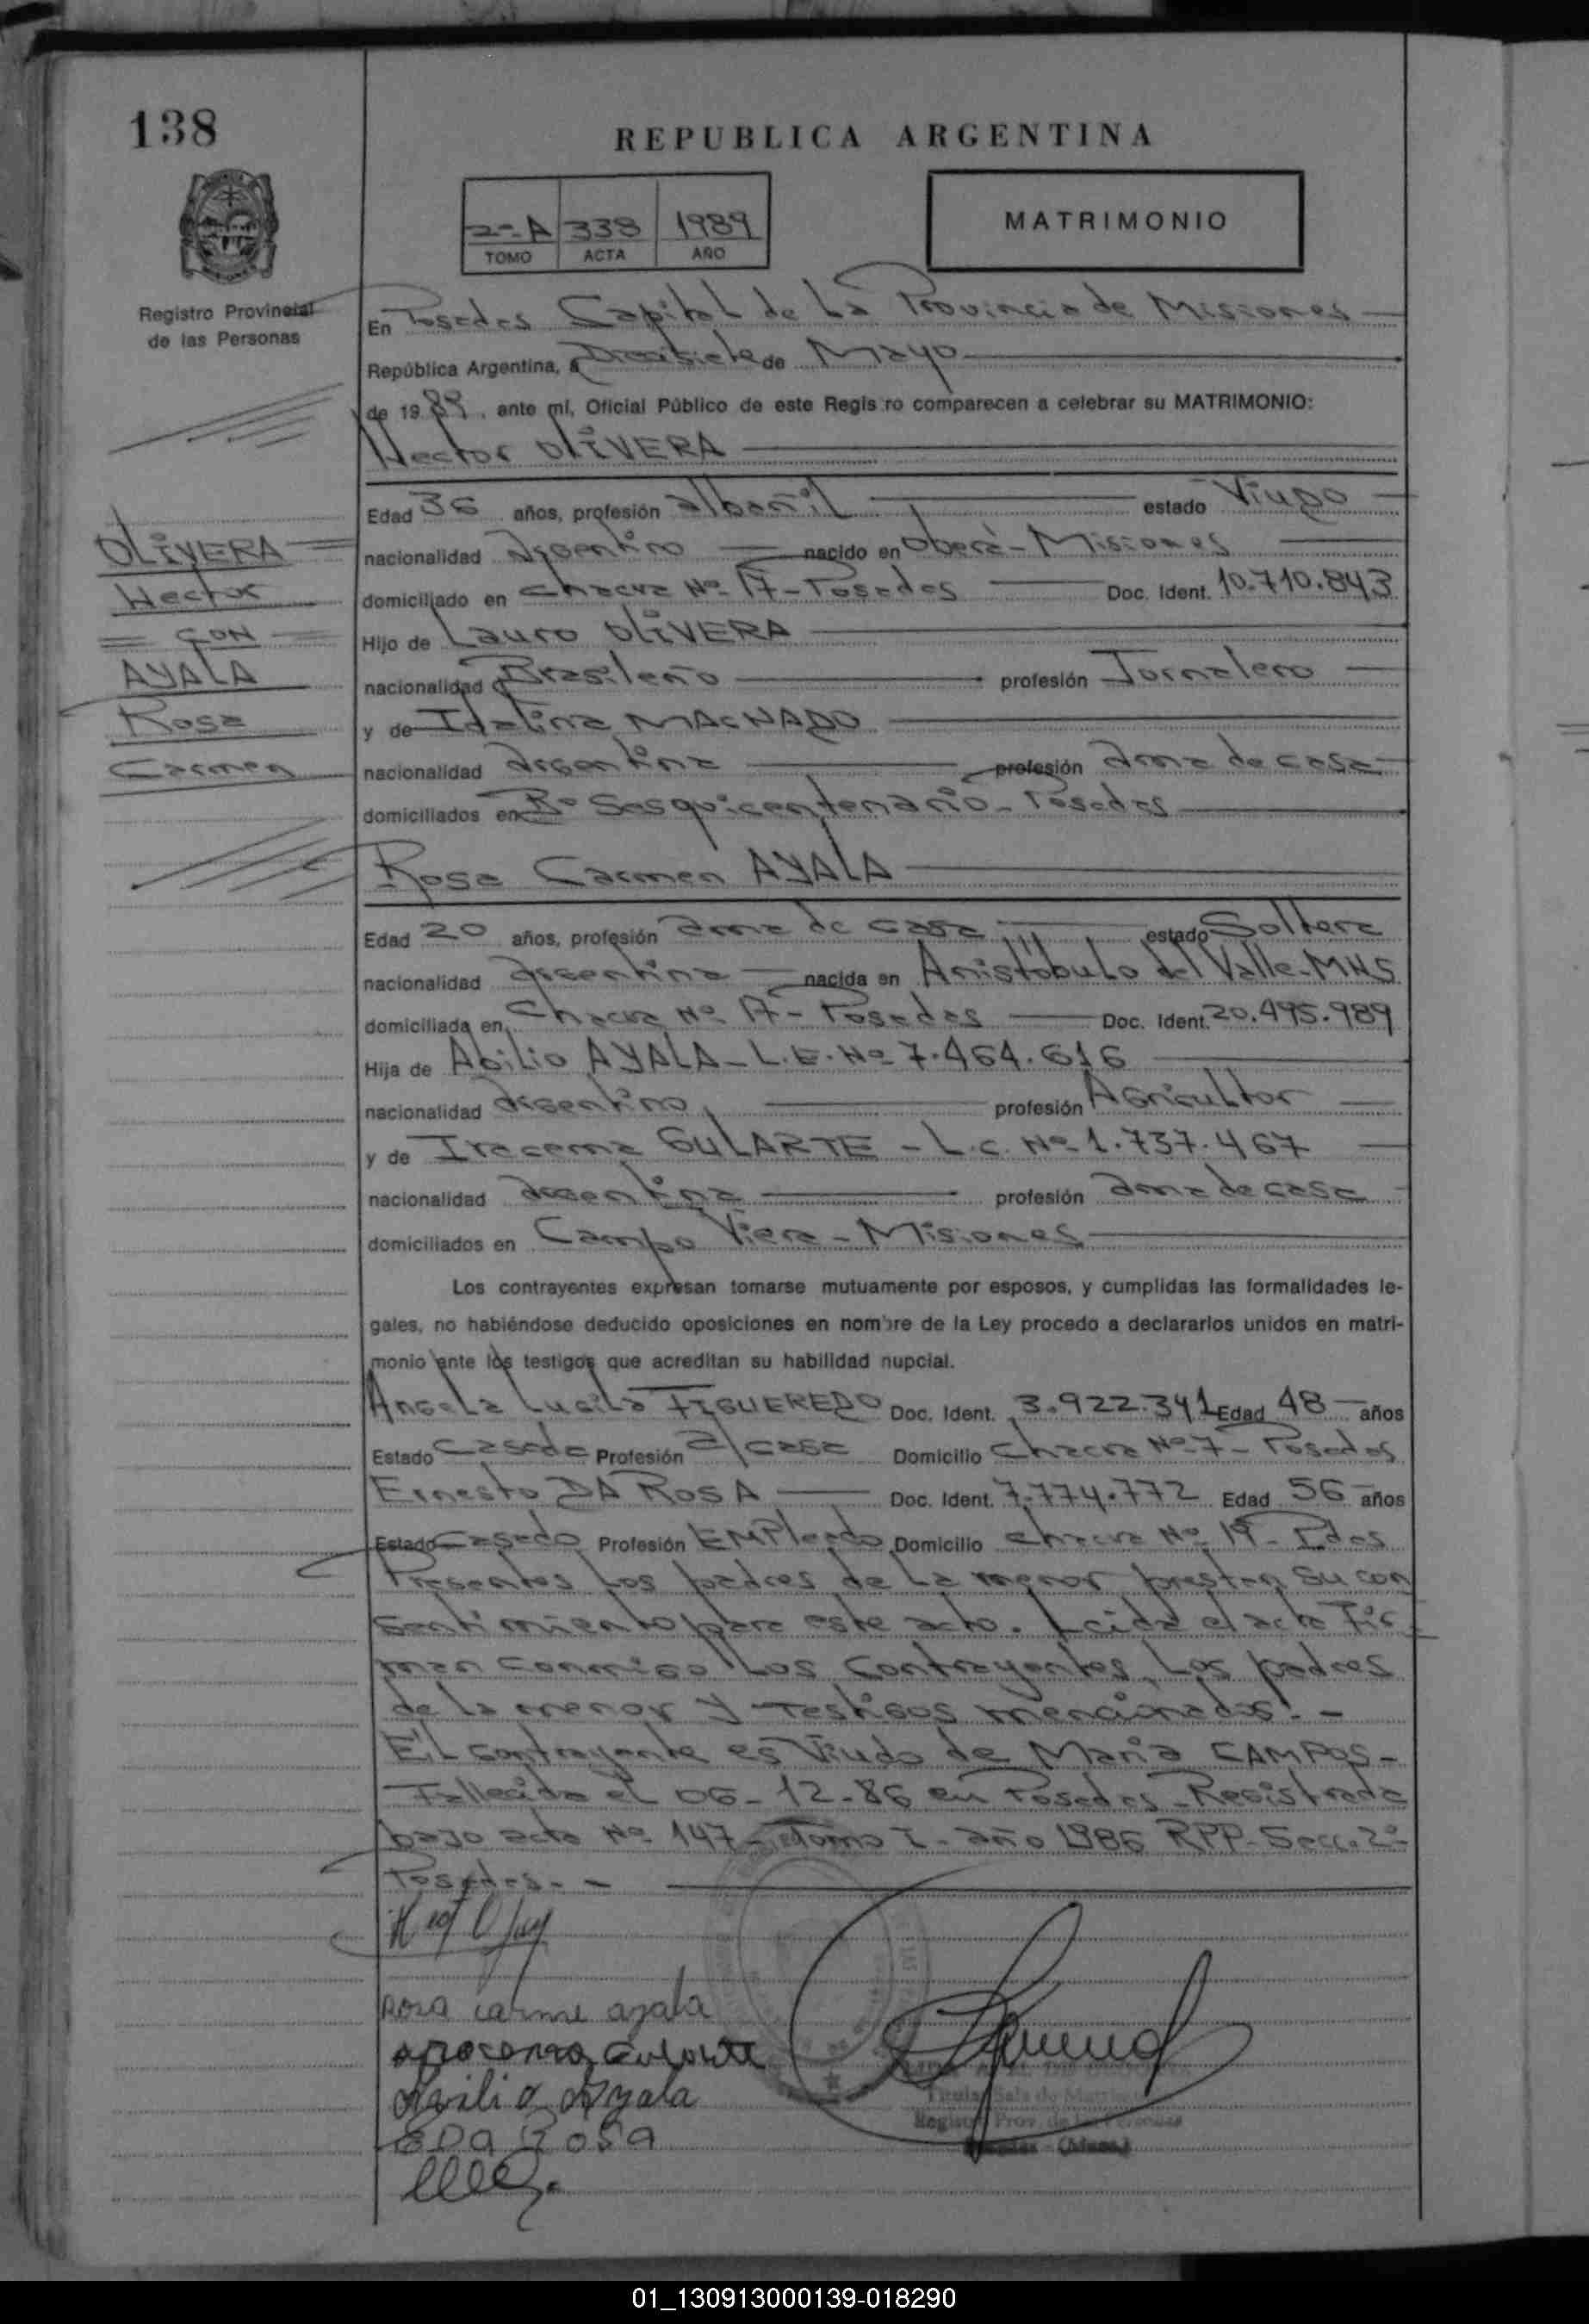 138
REPUBLICA ARGENTINA
2º A 338 1989
TOMO ACTA AÑO
MATRIMONIO
Registro Provincial
de las Personas
En Posadas Capital de La Provincia de Misiones
República Argentina, a Diecisiete de Mayo
de 1989, ante mí, Oficial Público de este Registro comparecen a celebrar su MATRIMONIO:
Hector OLIVERA
OLIVERA
Hector
CON
AYALA
Rosa
Carmen
Edad 36 años, profesión albañil estado Viudo
nacionalidad Argentino nacido en Oberá - Misiones
domiciliado en chacra Nº 17 - Posadas Doc. Ident. 10.710.843
Hijo de Lauro OLIVERA
nacionalidad Brasileño profesión Jornalero
y de Idalina MACHADO
nacionalidad argentina profesión ama de casa
domiciliados en Bº Sesquicentenario - Posadas
Rosa Carmen AYALA
Edad 20 años, profesión ama de casa estado Soltera
nacionalidad argentina nacida en Aristóbulo del Valle - MNS
domiciliada en Chacra Nº 17 - Posadas Doc. Ident. 20.495.989
Hija de Abilio AYALA - L.E. Nº 7.464.616
nacionalidad argentino profesión Agricultor
y de Iracema GULARTE - L.C. Nº 1.737.467
nacionalidad argentina profesión ama de casa
domiciliados en Campo Viera - Misiones
Los contrayentes expresan tomarse mutuamente por esposos, y cumplidas las formalidades le-
gales, no habiéndose deducido oposiciones en nombre de la Ley procedo a declararlos unidos en matri-
monio ante los testigos que acreditan su habilidad nupcial.
Angela Lucila FIGUEREDO Doc. Ident. 3.922.341 Edad 48 años
Estado Casada Profesión a/casa Domicilio Chacra Nº 7 - Posadas
Ernesto DA ROSA Doc. Ident. 7.774.772 Edad 56 años
Estado Casado Profesión EMPleado Domicilio chacra Nº 19 - Pdas
Presentes Los padres de La menor prestan su con
sentimiento para este acto. Leida el acta Fir
man conmigo Los Contrayentes, Los padres
de la menor y Testigos mencionados. -
El contrayente es Viudo de Maria CAMPOS -
Fallecida el 06-12-86 en Posadas - Registrada
bajo acta Nº 147 - Tomo I - año 1986 RPP - Secc. 2º
Posadas. -
rosa carme ayala
Avilio Ayala
E DA ROSA
Titular Sala de
Registro Prov. de las Personas
01_130913000139-018290